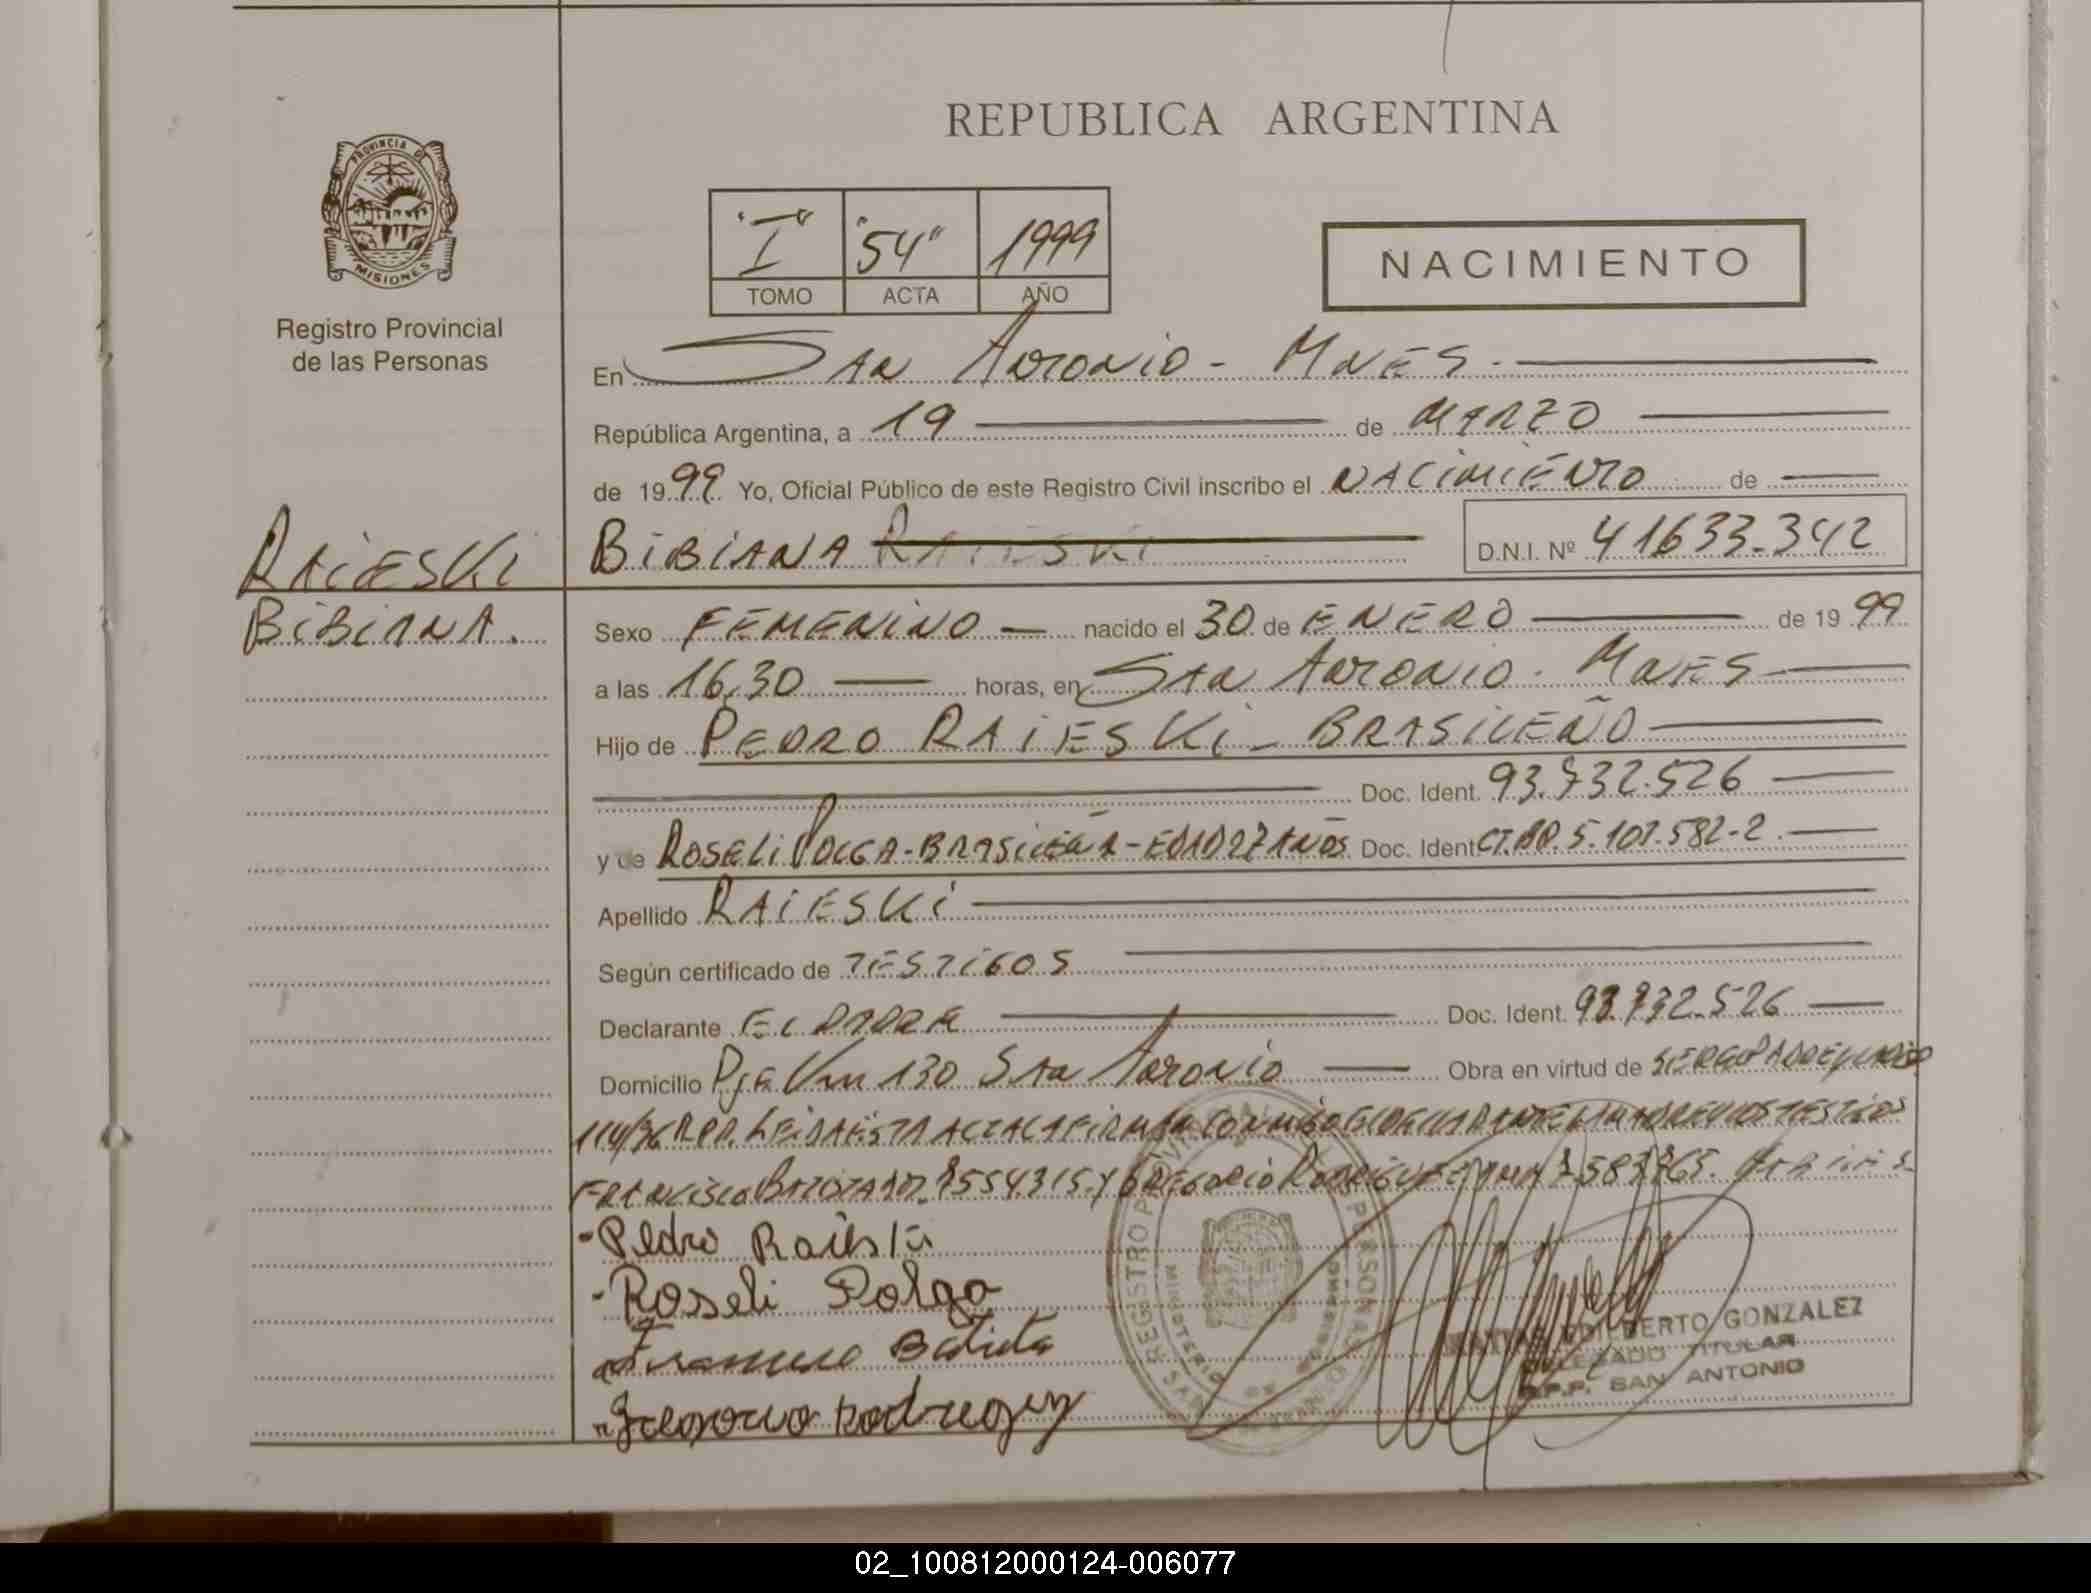 PROVINCIA DE
MISIONES
Registro Provincial
de las Personas
RAiESKi
BiBiANA.
REPUBLICA ARGENTINA
"I" "54" 1999
TOMO ACTA AÑO
NACIMIENTO
En SAN ANTONIO - MNES -
República Argentina, a 19 de MARZO
de 1999 Yo, Oficial Público de este Registro Civil inscribo el NACIMIENTO de
BiBiANA RAIESKI D.N.I. Nº 41633.342
Sexo FEMENINO nacido el 30 de ENERO de 1999
a las 16,30 horas, en SAN ANTONIO - MNES
Hijo de PEDRO RAiESKi - BRASILEÑO
Doc. Ident. 93.732.526
y de ROSELi POLGA - BRASILEÑA - EDAD 27 AÑOS Doc. Ident. 5.107.582-2
Apellido RAiESKi
Según certificado de TESTIGOS
Declarante EL PADRE Doc. Ident. 93.732.526
Domicilio Pje Km 130 SAN ANTONIO Obra en virtud de
LEIDA ESTA ACTA LA FIRMAN CONMIGO EL DECLARANTE LA MADRE Y LOS TESTIGOS
FRANCISCO Y GREGORIO RODRIGUEZ
- Pedro Raieski
- Roseli Polga
Batista
REGISTRO PERSONAS
MINISTERIO DE
EDILBERTO GONZALEZ
DELEGADO TITULAR
R.P.P. SAN ANTONIO
02_100812000124-006077